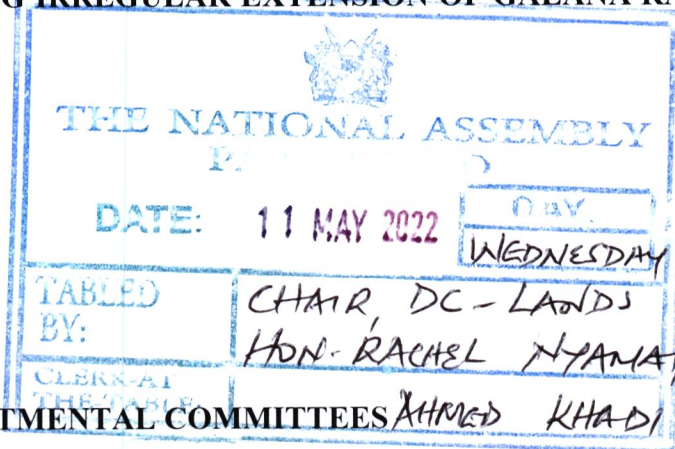 IRREGULAR EXTENSION OF GALANA
THE NATIONAL ASSEMBLY
DATE: 11 MAY 2022 DAY.
WEDNESDAY
TABLED BY: CHAIR, DC - LANDS
HON. RACHEL NYAMA
CLERK-AT THE-TABLE: AHMED KHADI
TMENTAL COMMITTEES